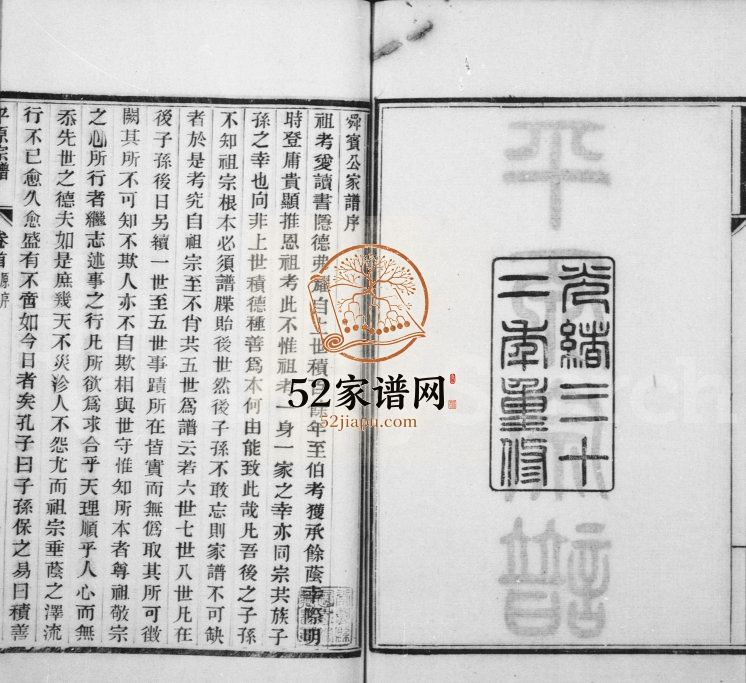 光緒三十
二年重修
平原宗譜
舜賓公家譜序
祖考愛讀書隱德弗耀自 世積 餘年至伯考獲承餘蔭幸際明
時登庸貴顯推恩祖考此不惟祖考一身一家之幸亦同宗共族子
孫之幸也向非上世積德種善爲本何由能致此哉凡吾後之子孫
不知祖宗根本必須譜牒貽後世然後子孫不敢忘則家譜不可缺
者於是考究自祖宗至不肖共五世爲譜云若六世七世八世凡在
後子孫後日另續一世至五世事蹟所在皆實而無僞取其所可徵
闕其所不可知不欺人亦不自欺相與世守惟知所本者尊祖敬宗
之心所行者繼志述事之行凡所欲爲求合乎天理順乎人心而無
忝先世之德夫如是庶幾天不災沴人不怨尤而祖宗垂蔭之澤流
行不已愈久愈盛有不啻如今日者矣孔子曰子孫保之易曰積善
平原宗譜 卷首 源序
52家谱网
52jiapu.com